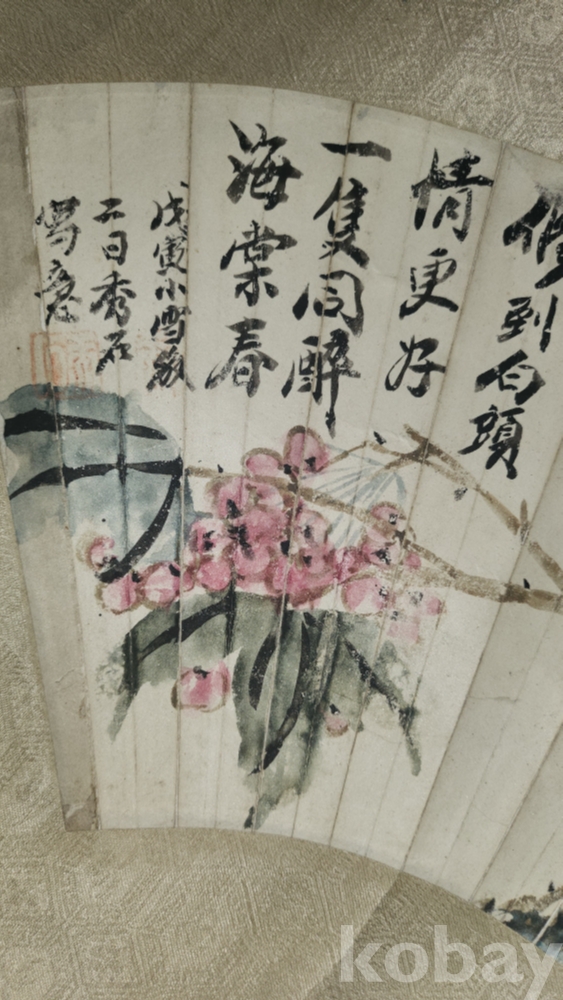 修到白頭
情更好
一隻同醉
海棠春
戊寅小雪後
二日秀石
寫意
kobay